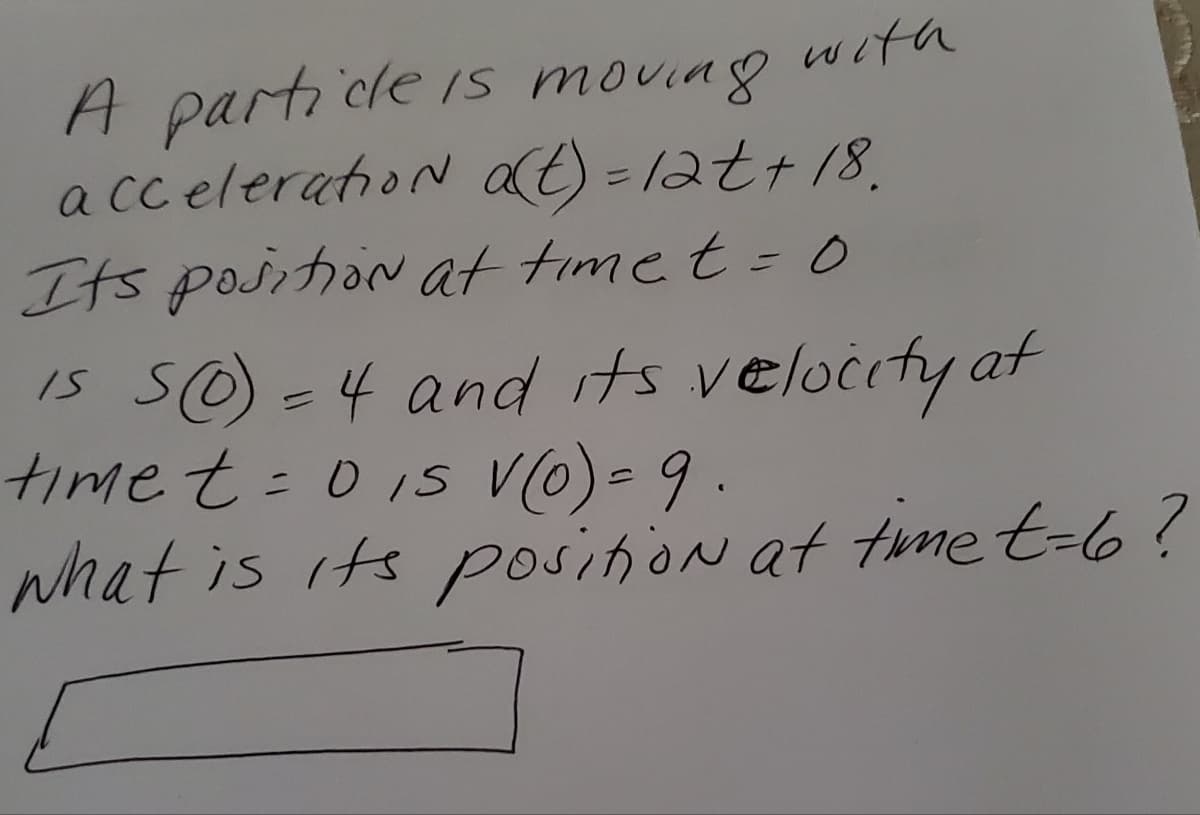 A particle is moving with
acceleration a(t) = 12t + 18.
Its position at time t = 0
is s(0) = 4 and its velocity at
time t = 0 is v(0) = 9.
what is its position at time t=6?